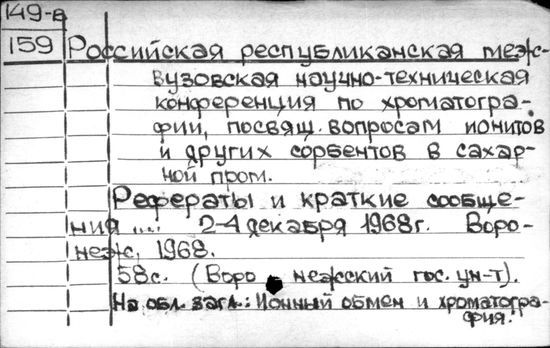 149-в
159
Российская республиканская меж-
вузовская научно-техническая
конференция по хроматогра-
фии, посвящ. вопросам ионитов
и других сорбентов в сахар-
ной пром.
Рефераты и краткие сообще-
ния .... 2-4 декабря 1968г. Воро-
неж, 1968.
58с. (Воро нежский гос. ун-т).
На обл. загл.: Ионный обмен и хроматогра-
фия.